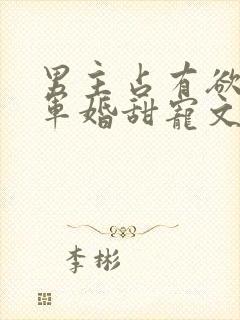 男主占有欲
军婚甜宠文
李彬